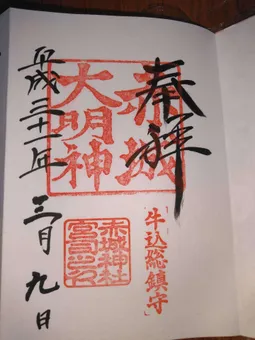 奉拝
赤城
大明神
牛込総鎮守
赤城神社
宮司之印
平成三十一年三月九日